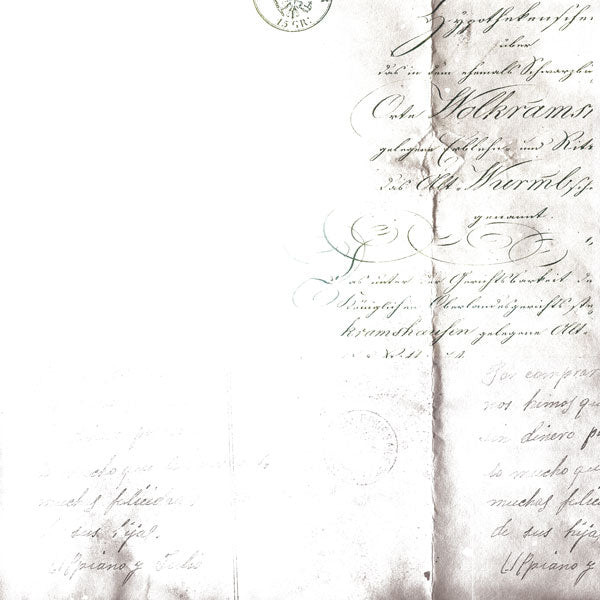 15 GR:
Hypothekenschei
über
das in dem ehemals Schwarzbu
Orte Wolkrams
gelegene Erblehn- und Ritt
das Alt-Wurmb'sch
genannt.
Das unter der Gerichtsbarkeit de
Königlichen Oberlandesgerichts
kramshausen gelegene Alt-
Por comprar
nos hemos qu
sin dinero p
lo mucho qu
muchas felic
de sus hija
Ulpiano y
lo mucho que
muchas felicida
de sus hijas.
Ulpiano y Julio